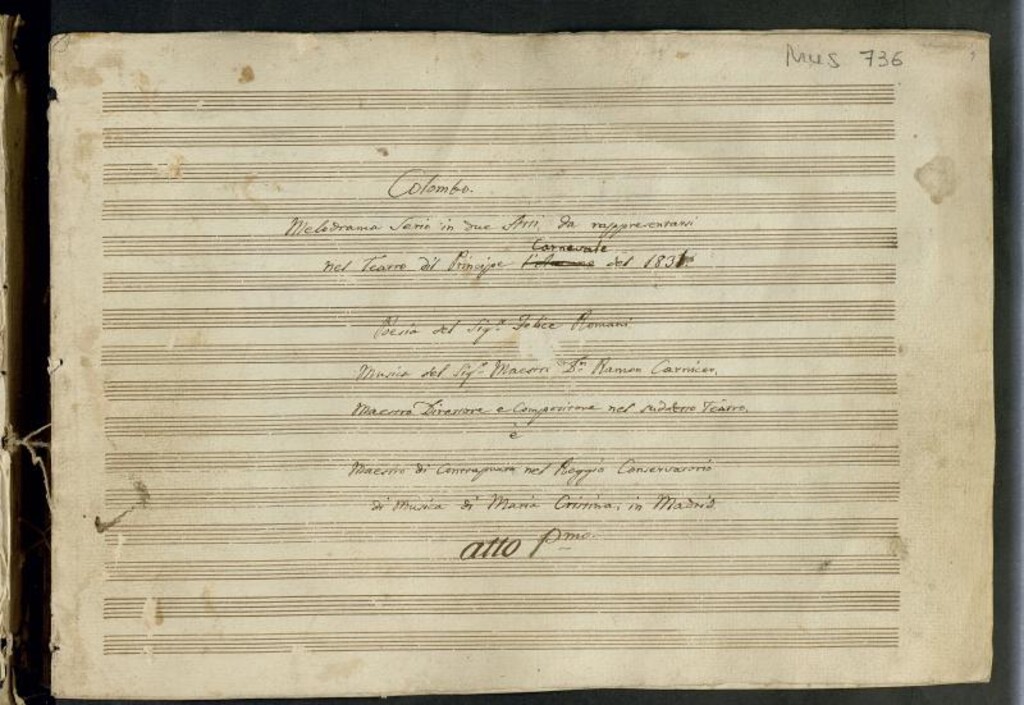 Mus 736
Colombo.
Melodrama Serio in due Atti, da rappresentarsi
Carnevale
nel Teatro del Principe del 1831.
Poesia del Sigr. Felice Romani
Musica del Sigr. Maestro Dn. Ramon Carnicer,
Maestro Direttore e Compositore nel suddetto Teatro.
è
Maestro di Contrapunto nel Reggio Conservatorio
di Musica di Maria Cristina, in Madrid.
atto Pmo.